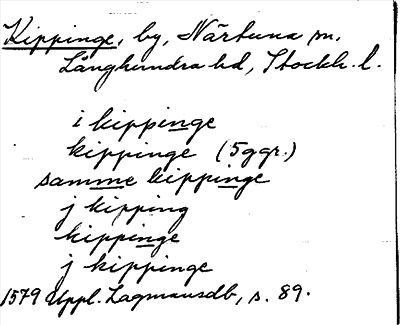 Kippinge, by, Närtuna sn.
Långhundra hd, Stockh. l.
i kippinge
kippinge (5ggr.)
samme kippinge
j kipping
kippinge
j kippinge
1579 Uppl. Lagmansdb, s. 89.